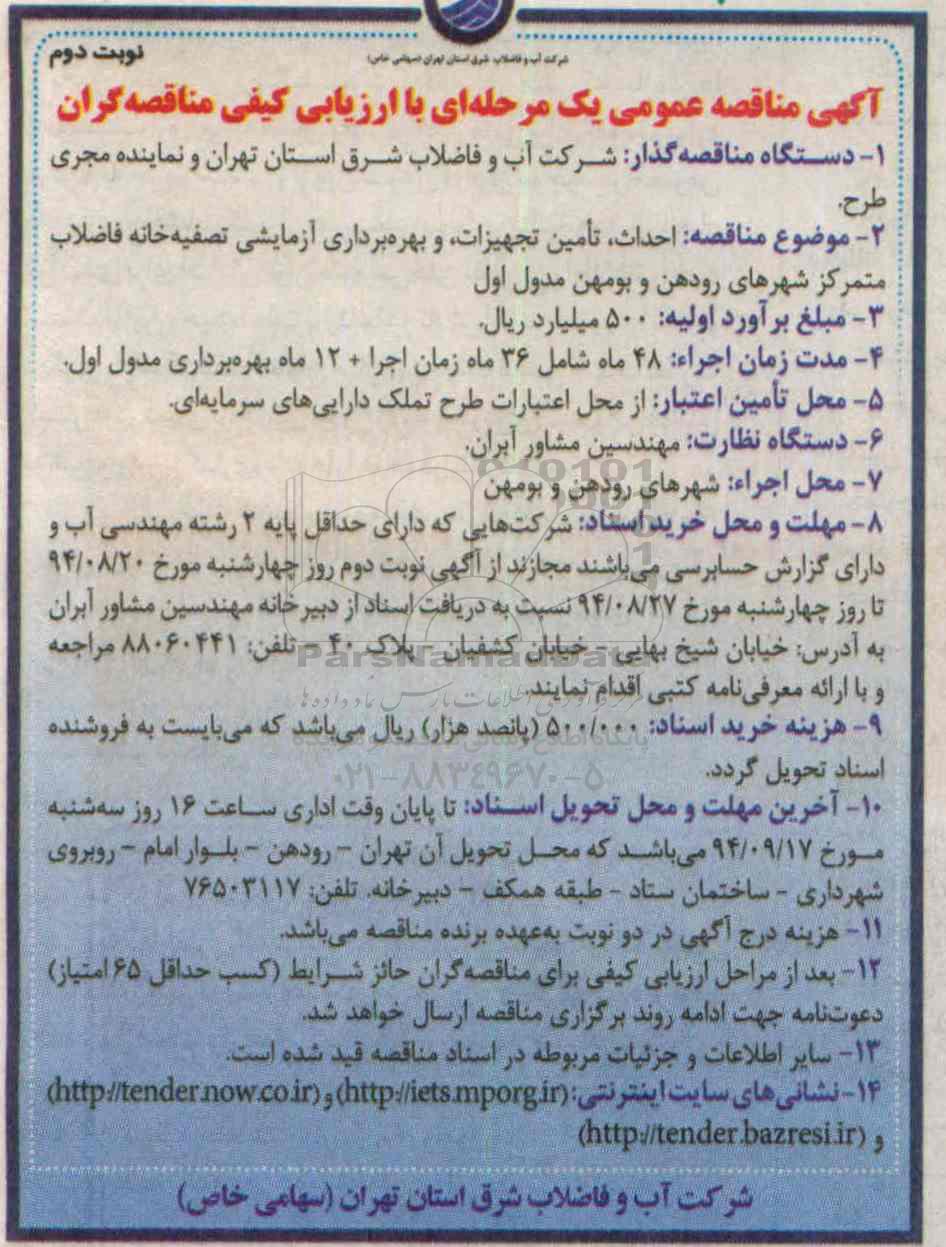 شرکت آب و فاضلاب شرق استان تهران (سهامی خاص)
نوبت دوم
آگهی مناقصه عمومی یک مرحله‌ای با ارزیابی کیفی مناقصه‌گران
۱- دستگاه مناقصه‌گذار: شرکت آب و فاضلاب شرق استان تهران و نماینده مجری
طرح.
۲- موضوع مناقصه: احداث، تأمین تجهیزات، و بهره‌برداری آزمایشی تصفیه‌خانه فاضلاب
متمرکز شهرهای رودهن و بومهن مدول اول
۳- مبلغ برآورد اولیه: ۵۰۰ میلیارد ریال.
۴- مدت زمان اجراء: ۴۸ ماه شامل ۳۶ ماه زمان اجرا + ۱۲ ماه بهره‌برداری مدول اول.
۵- محل تأمین اعتبار: از محل اعتبارات طرح تملک دارایی‌های سرمایه‌ای.
۶- دستگاه نظارت: مهندسین مشاور آبران.
۷- محل اجراء: شهرهای رودهن و بومهن
۸- مهلت و محل خرید اسناد: شرکت‌هایی که دارای حداقل پایه ۲ رشته مهندسی آب و
دارای گزارش حسابرسی می‌باشند مجازند از آگهی نوبت دوم روز چهارشنبه مورخ ۹۴/۰۸/۲۰
تا روز چهارشنبه مورخ ۹۴/۰۸/۲۷ نسبت به دریافت اسناد از دبیرخانه مهندسین مشاور آبران
به آدرس: خیابان شیخ بهایی – خیابان کشفیان – پلاک ۴۰ – تلفن: ۸۸۰۶۰۴۴۱ مراجعه
و با ارائه معرفی‌نامه کتبی اقدام نمایند.
۹- هزینه خرید اسناد: ۵۰۰/۰۰۰ (پانصد هزار) ریال می‌باشد که می‌بایست به فروشنده
اسناد تحویل گردد.
۱۰- آخرین مهلت و محل تحویل اسناد: تا پایان وقت اداری ساعت ۱۶ روز سه‌شنبه
مورخ ۹۴/۰۹/۱۷ می‌باشد که محل تحویل آن تهران – رودهن – بلوار امام – روبروی
شهرداری – ساختمان ستاد – طبقه همکف – دبیرخانه. تلفن: ۷۶۵۰۳۱۱۷
۱۱- هزینه درج آگهی در دو نوبت به‌عهده برنده مناقصه می‌باشد.
۱۲- بعد از مراحل ارزیابی کیفی برای مناقصه‌گران حائز شرایط (کسب حداقل ۶۵ امتیاز)
دعوتنامه جهت ادامه روند برگزاری مناقصه ارسال خواهد شد.
۱۳- سایر اطلاعات و جزئیات مربوطه در اسناد مناقصه قید شده است.
۱۴-نشانی‌های سایت اینترنتی:(http://iets.mporg.ir) و (http://tender.nww.co.ir)
و (http://tender.bazresi.ir)
شرکت آب و فاضلاب شرق استان تهران (سهامی خاص)
ParsNamadData
۰۲۱-۸۸۳۴۹۶۷۰-۵